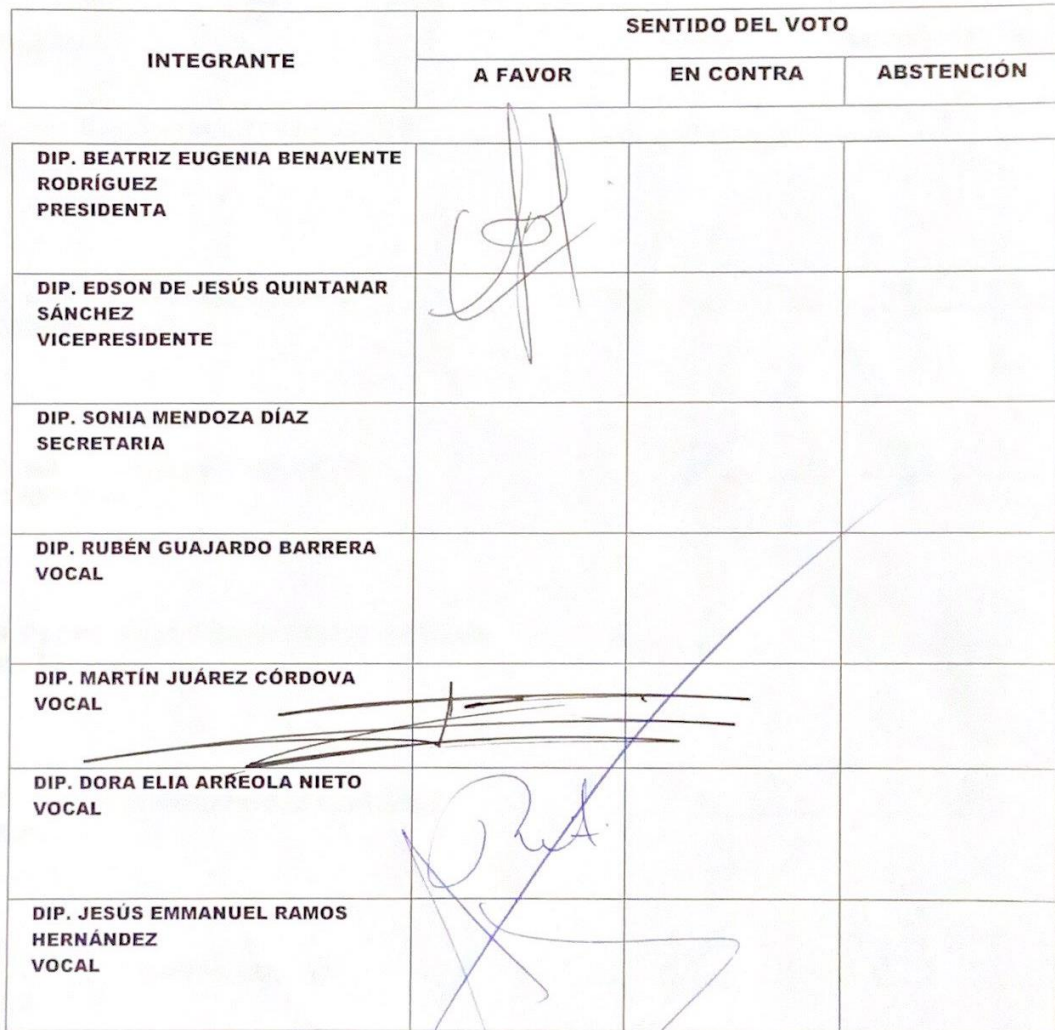 SENTIDO DEL VOTO
INTEGRANTE
A FAVOR EN CONTRA ABSTENCIÓN
DIP. BEATRIZ EUGENIA BENAVENTE
RODRÍGUEZ
PRESIDENTA
DIP. EDSON DE JESÚS QUINTANAR
SÁNCHEZ
VICEPRESIDENTE
DIP. SONIA MENDOZA DÍAZ
SECRETARIA
DIP. RUBÉN GUAJARDO BARRERA
VOCAL
DIP. MARTÍN JUÁREZ CÓRDOVA
VOCAL
DIP. DORA ELIA ARREOLA NIETO
VOCAL
DIP. JESÚS EMMANUEL RAMOS
HERNÁNDEZ
VOCAL